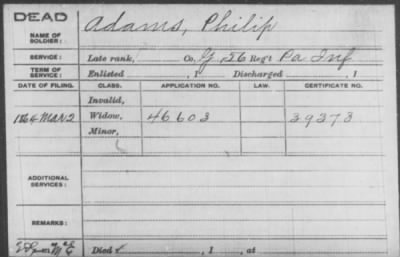 DEAD
NAME OF SOLDIER: Adams, Philip
SERVICE: Late rank, Co. G, 56 Reg't Pa Inf
TERM OF SERVICE: Enlisted , 1 Discharged , 1
DATE OF FILING. CLASS. APPLICATION NO. LAW. CERTIFICATE NO.
Invalid,
1864 MAR 2 Widow, 46603 39373
Minor,
ADDITIONAL SERVICES:
REMARKS:
Died , 1 , at